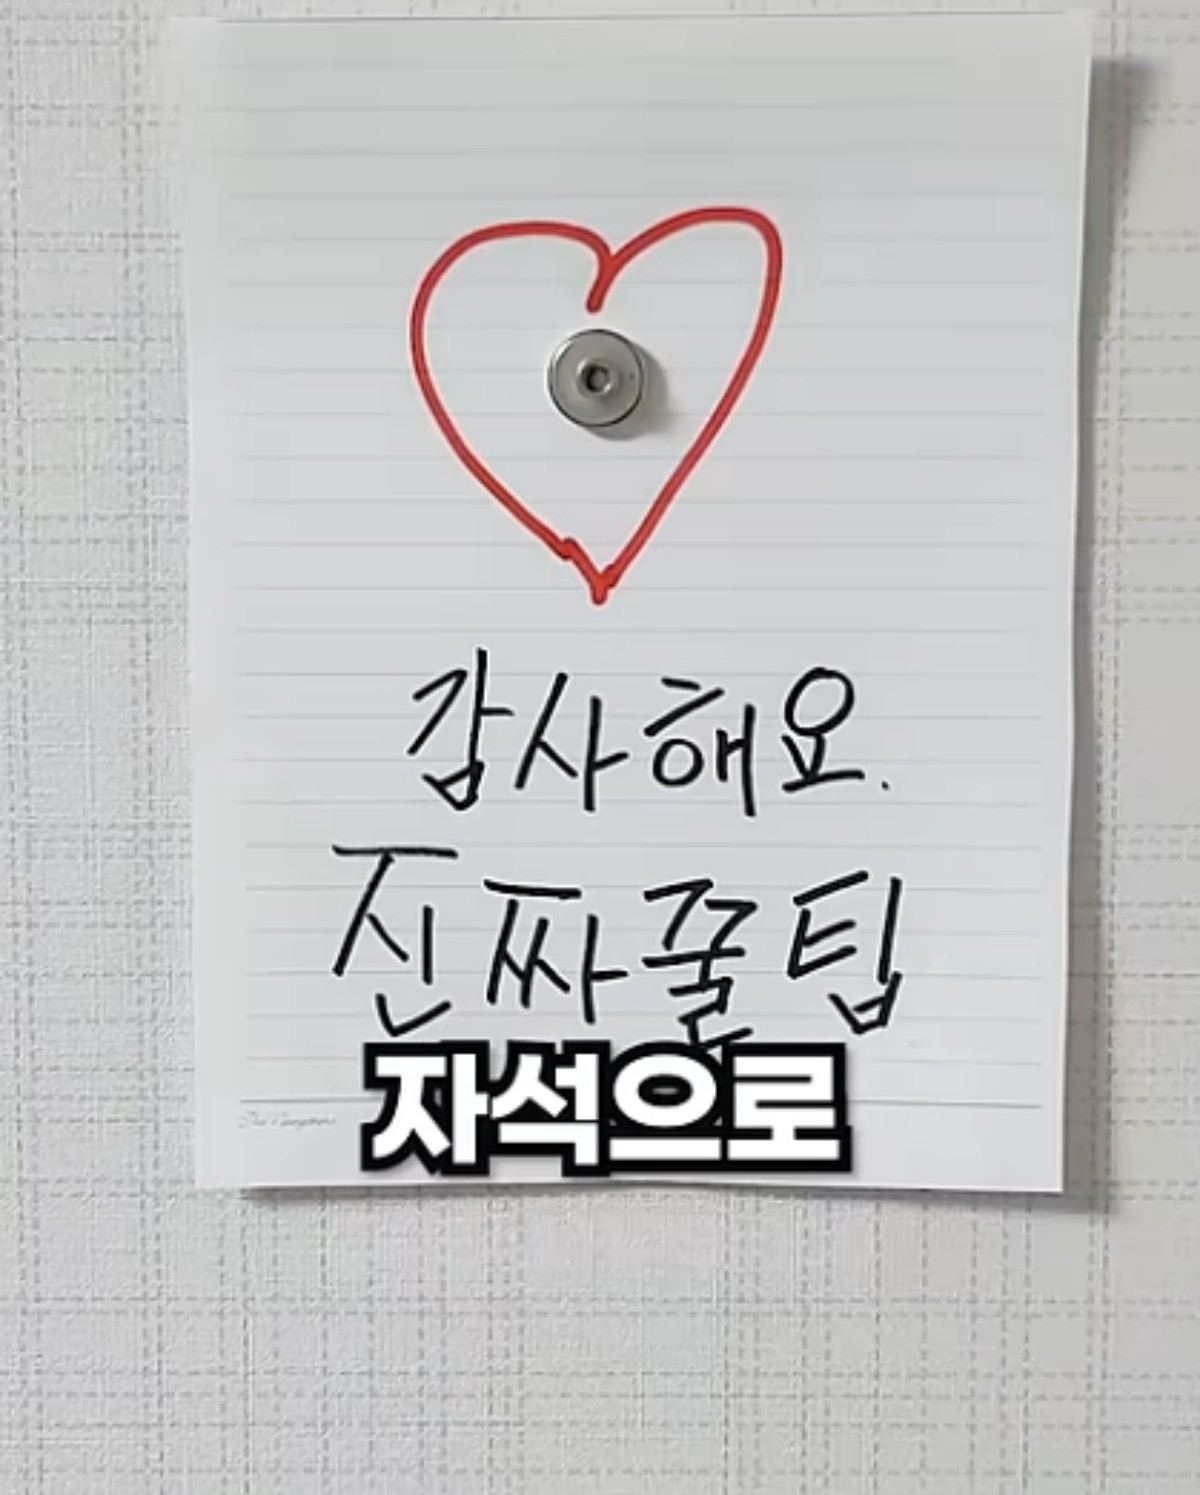 감사해요.
진짜 꿀팁
자석으로